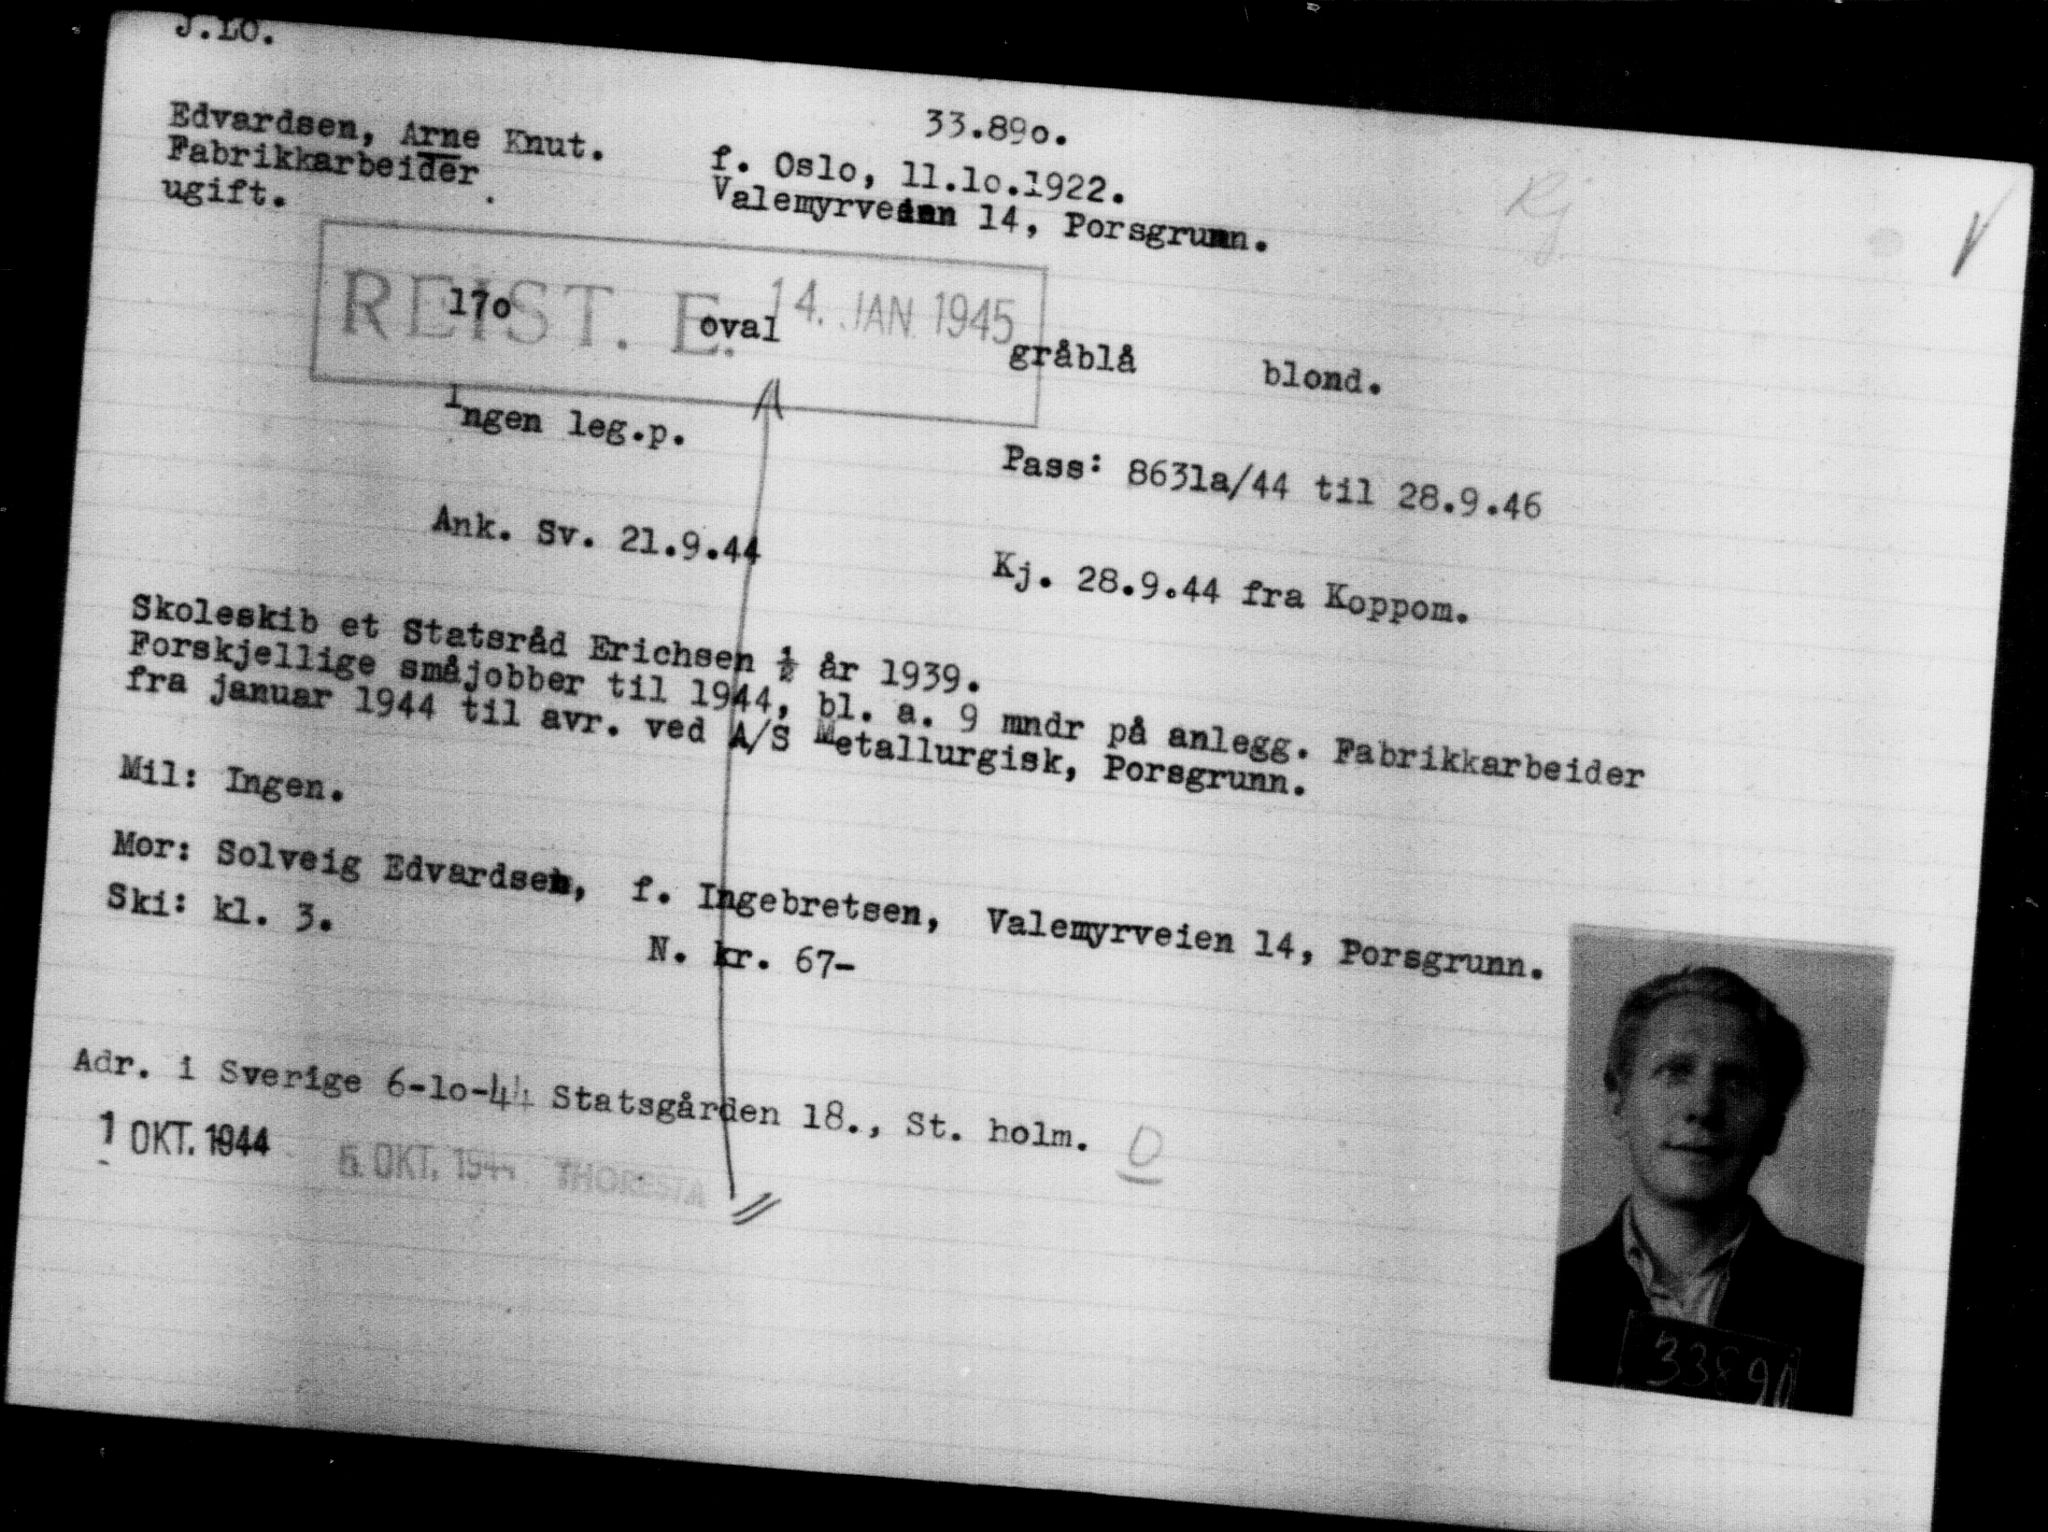 J.LO.
33.890.
Edvardsen, Arne Knut.
f. Oslo, 11.10.1922.
Fabrikkarbeider
Valemyrveien 14, Porsgrunn.
ugift.
Kj
REIST. E. 14. JAN. 1945
170 oval gråblå blond.
Ingen leg.p.
Pass: 8631a/44 til 28.9.46
Ank. Sv. 21.9.44
Kj. 28.9.44 fra Koppom.
Skoleskib et Statsråd Erichsen ½ år 1939.
Forskjellige småjobber til 1944, bl. a. 9 mndr på anlegg. Fabrikkarbeider
fra januar 1944 til avr. ved A/S Metallurgisk, Porsgrunn.
Mil: Ingen.
Mor: Solveig Edvardsen, f. Ingebretsen, Valemyrveien 14, Porsgrunn.
Ski: kl. 3.
N. kr. 67-
Adr. i Sverige 6-10-44 Statsgården 18., St. holm.
D
1 OKT. 1944
OKT. 1944 THORESTA
33890